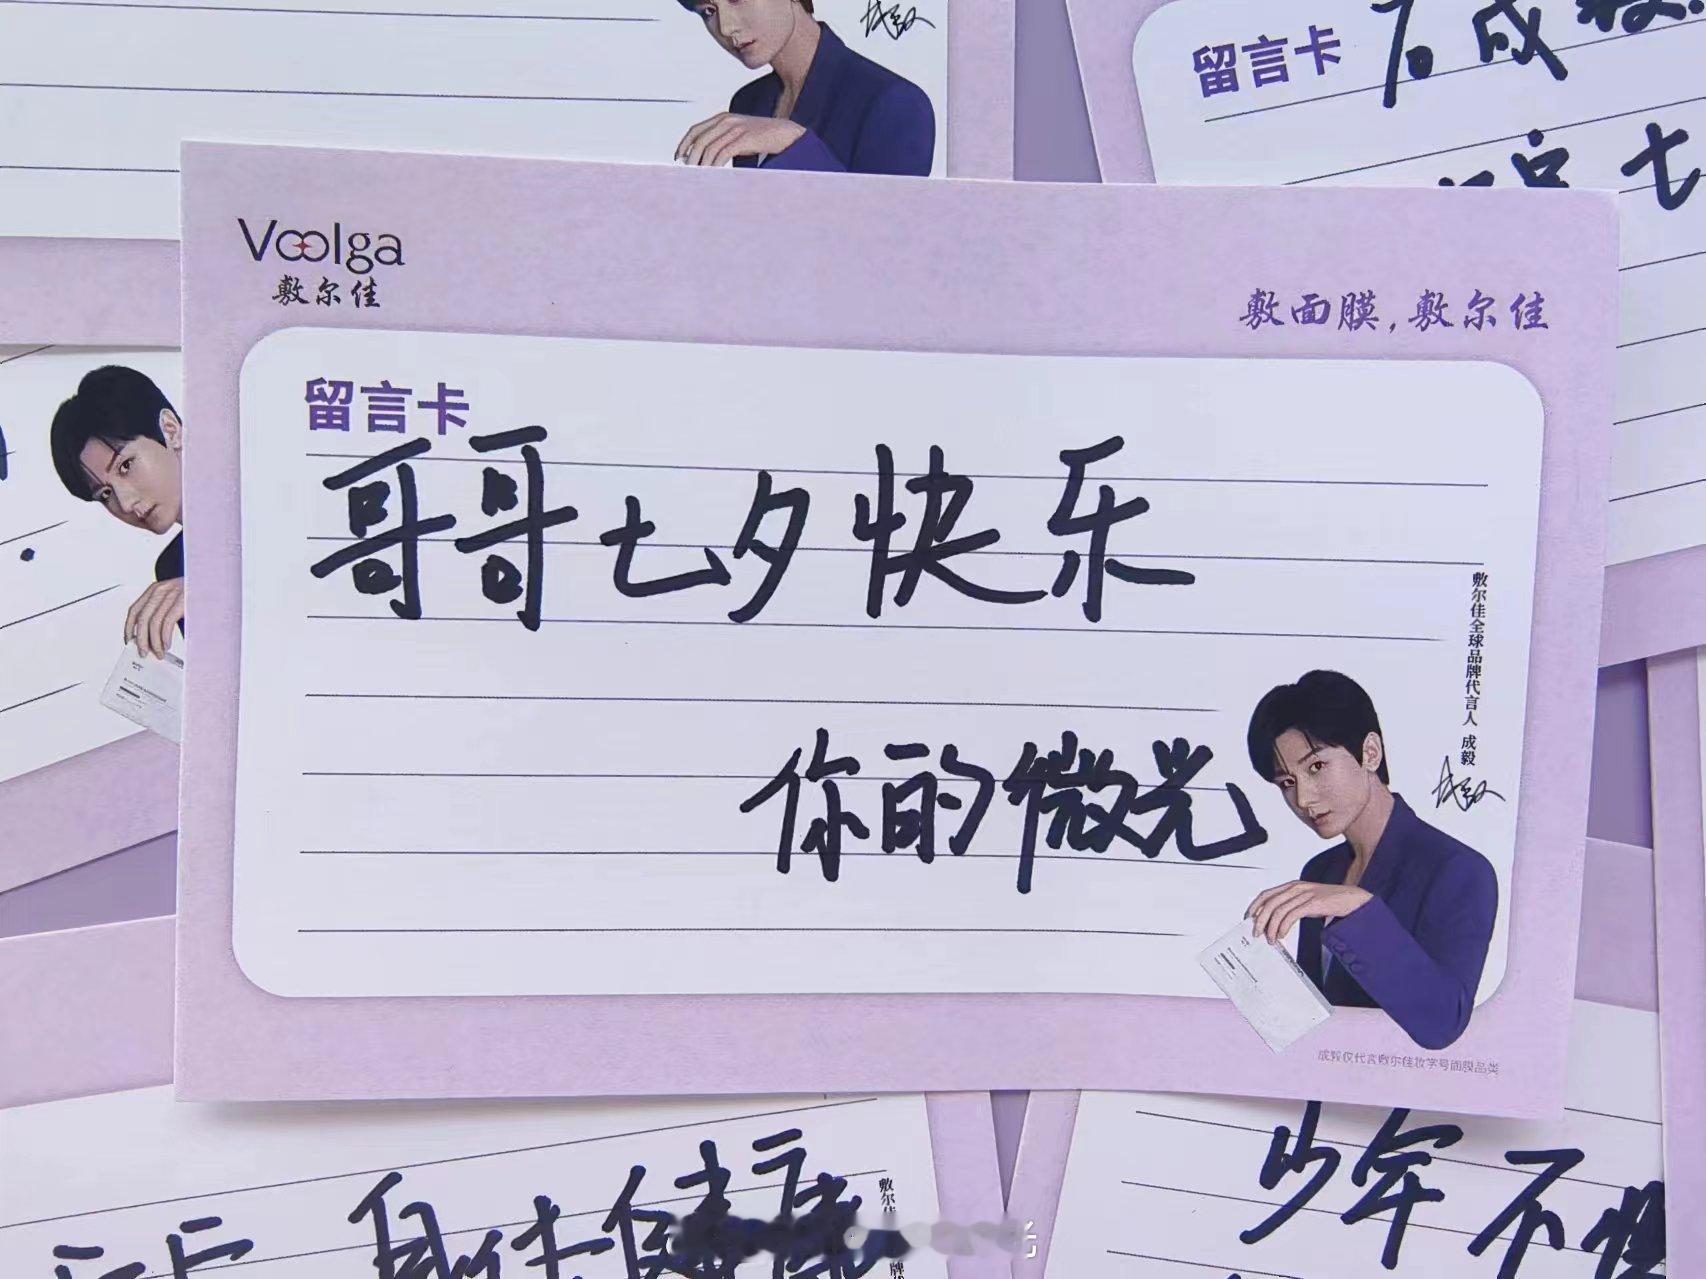 留言卡
Voolga
敷尔佳
敷面膜，敷尔佳
留言卡
哥哥七夕快乐
你的微光
敷尔佳全球品牌代言人 成毅
成毅
成毅仅代言敷尔佳妆字号面膜品类
身体健康
少年不惧